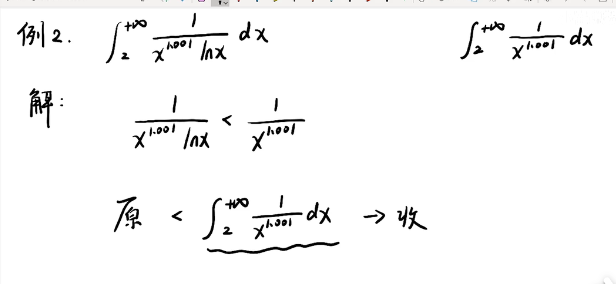 例2. ∫₂^{+∞} 1/(x^{1.001} lnx) dx ∫₂^{+∞} 1/x^{1.001} dx
解:
1/(x^{1.001} lnx) < 1/x^{1.001}
原 < ∫₂^{+∞} 1/x^{1.001} dx → 收